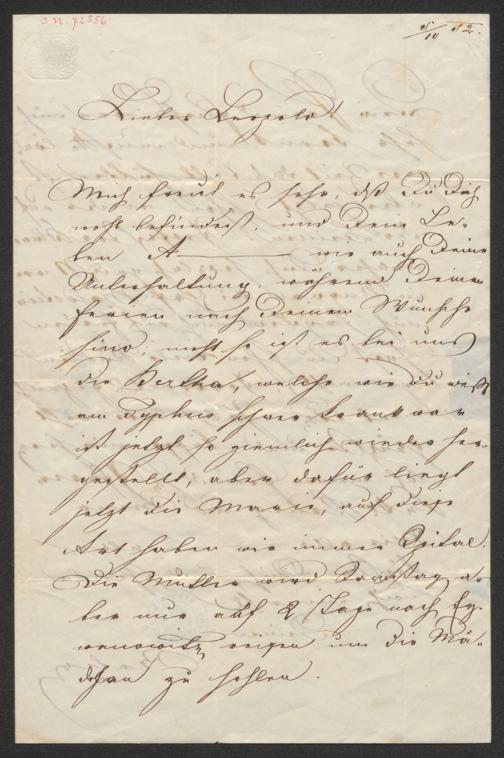 I.N. 72556
5/10 52.
Lieber Leopold!
Mich freut es sehr, daß Du Dich
wohl befindest, und Dein Le-
ben A——— wie auch Deine
Unterhaltung, während Deinen
Ferien nach Deinem Wunsche
sind. nicht so ist es bei uns
die Bertha, welche wie Du weißt
am Typhus schwer krank war
ist jetzt so ziemlich wieder her-
gestellt, aber dafür liegt
jetzt die Marie, auf diese
Art haben wir immer Spital.
Die Mutter wird Samstag a-
ber nur auf 2 Tage nach
reisen um die Mä-
dchen zu hohlen.